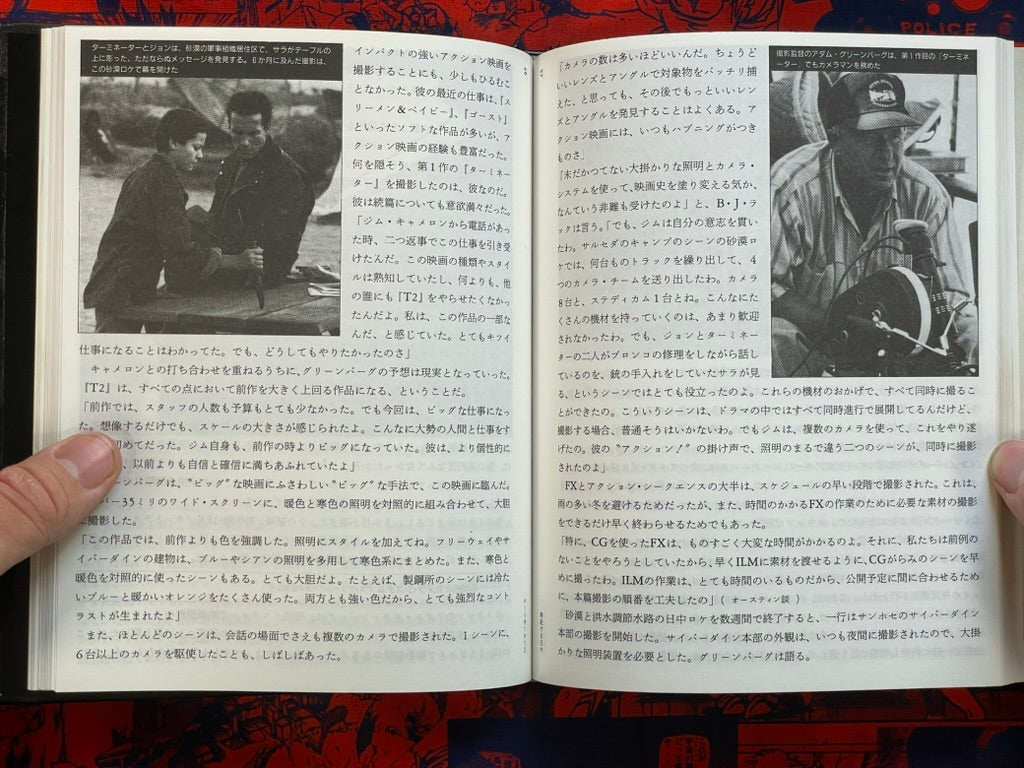 ターミネーターとジョンは、砂漠の軍事組織居住区で、サラがテーブルの
上に彫った、ただならぬメッセージを発見する。6か月に及んだ撮影は、
この砂漠ロケで幕を開けた
インパクトの強いアクション映画を
撮影することにも、少しもひるむこ
となかった。彼の最近の仕事は、『ス
リーメン&ベイビー』、『ゴースト』
といったソフトな作品が多いが、ア
クション映画の経験も豊富だった。
何を隠そう、第1作の『ターミネー
ター』を撮影したのは、彼なのだ。
彼は続篇についても意欲満々だった。
「ジム・キャメロンから電話があっ
た時、二つ返事でこの仕事を引き受
けたんだ。この映画の種類やスタイ
ルは熟知していたし、何よりも、他
の誰にも『T2』をやらせたくなかっ
たんだよ。私は、この作品の一部な
んだ、と感じていた。とてもキツイ
仕事になることはわかってた。でも、どうしてもやりたかったのさ」
キャメロンとの打ち合わせを重ねるうちに、グリーンバーグの予想は現実となっていった。
『T2』は、すべての点において前作を大きく上回る作品になる、ということだ。
「前作では、スタッフの人数も予算もとても少なかった。でも今回は、ビッグな仕事になっ
た。想像するだけでも、スケールの大きさが感じられたよ。こんなに大勢の人間と仕事をす
初めてだった。ジム自身も、前作の時よりビッグになっていた。彼は、より個性的に
、以前よりも自信と確信に満ちあふれていたよ」
ーンバーグは、"ビッグ"な映画にふさわしい"ビッグ"な手法で、この映画に臨んだ。
パー35ミリのワイド・スクリーンに、暖色と寒色の照明を対照的に組み合わせて、大胆
に撮影した。
「この作品では、前作よりも色を強調した。照明にスタイルを加えてね。フリーウェイやサ
イバーダインの建物は、ブルーやシアンの照明を多用して寒色系にまとめた。また、寒色と
暖色を対照的に使ったシーンもある。とても大胆だよ。たとえば、製鋼所のシーンには冷た
いブルーと暖かいオレンジをたくさん使った。両方とも強い色だから、とても強烈なコント
ラストが生まれたよ」
また、ほとんどのシーンは、会話の場面でさえも複数のカメラで撮影された。1シーンに、
6台以上のカメラを駆使したことも、しばしばあった。
撮影監督のアダム・グリーンバーグは、第1作目の『ターミネ
ーター』でもカメラマンを務めた
「カメラの数は多いほどいいんだ。ちょうど
いいレンズとアングルで対象物をバッチリ捕
えた、と思っても、その後でもっといいレン
ズとアングルを発見することはよくある。ア
クション映画には、いつもハプニングがつき
ものさ」
「未だかつてない大掛かりな照明とカメラ・
システムを使って、映画史を塗り変える気か、
なんていう非難も受けたのよ」と、B・J・ラ
ックは言う。「でも、ジムは自分の意志を貫い
たわ。サルセダのキャンプのシーンの砂漠ロ
ケでは、何台ものトラックを繰り出して、4
つのカメラ・チームを送り出したわ。カメラ
8台と、ステディカム1台とね。こんなにた
くさんの機材を持っていくのは、あまり歓迎
されなかったわ。でも、ジョンとターミネー
ターの二人がブロンコの修理をしながら話し
ているのを、銃の手入れをしていたサラが見
る、というシーンではとても役立ったのよ。これらの機材のおかげで、すべて同時に撮るこ
とができたの。こういうシーンは、ドラマの中ではすべて同時進行で展開してるんだけど、
撮影する場合、普通そうはいかないわ。でもジムは、複数のカメラを使って、これをやり遂
げたの。彼の"アクション!"の掛け声で、照明のまるで違う二つのシーンが、同時に撮影
されたのよ」
FXとアクション・シークエンスの大半は、スケジュールの早い段階で撮影された。これは、
雨の多い冬を避けるためだったが、また、時間のかかるFXの作業のために必要な素材の撮影
をできるだけ早く終わらせるためでもあった。
「特に、CGを使ったFXは、ものすごく大変な時間がかかるのよ。それに、私たちは前例の
ないことをやろうとしていたから、早くILMに素材を渡せるように、CGがらみのシーンを早
めに撮ったわ。ILMの作業は、とても時間のいるものだから、公開予定に間に合わせるため
に、本篇撮影の順番を工夫したの」(オースティン談)
砂漠と洪水調節水路の日中ロケを数週間で終了すると、一行はサンホセのサイバーダイン
本部の撮影を開始した。サイバーダイン本部の外観は、いつも夜間に撮影されたので、大掛
かりな照明装置を必要とした。グリーンバーグは語る。
POLICE